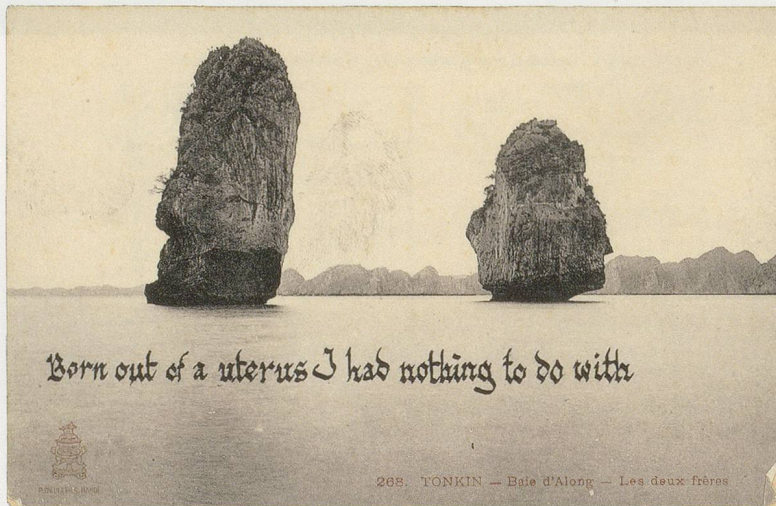 Born out of a uterus I had nothing to do with
268. TONKIN — Baie d'Along — Les deux frères